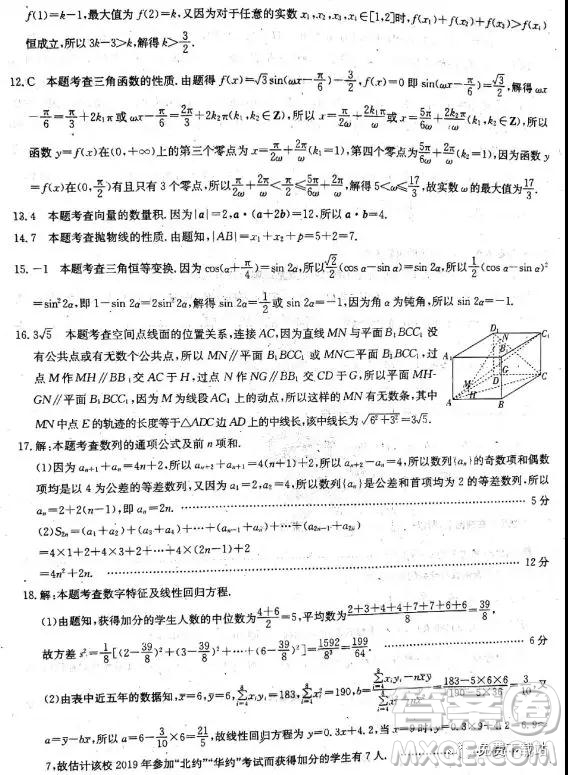 f(1)=k-1,最大值为 f(2)=k,又因为对于任意的实数 x₁,x₂,x₃,x₄∈[1,2]时,f(x₁)+f(x₂)+f(x₃)>f(x₄)
恒成立,所以 3k-3>k,解得 k>3/2.
12.C 本题考查三角函数的性质.由题得 f(x)=√3sin(ωx-π/6)-3/2,f(x)=0 即 sin(ωx-π/6)=√3/2,解得 ωx
-π/6=π/3+2k₁π 或 ωx-π/6=2π/3+2k₂π(k₁,k₂∈Z),所以 x=π/2ω+2k₁π/ω 或 x=5π/6ω+2k₂π/ω(k₁,k₂∈Z),所以
函数 y=f(x)在(0,+∞)上的第三个零点为 x=π/2ω+2π/ω(k₁=1),第四个零点为 x=5π/6ω+2π/ω(k₂=1),因为函数 y
=f(x)在(0,π/2)有且只有 3 个零点,所以π/2ω+2π/ω<π/2≤5π/6ω+2π/ω,解得 5<ω≤17/3,故实数 ω 的最大值为17/3.
13.4 本题考查向量的数量积.因为|a|=2,a·(a+2b)=12,所以 a·b=4.
14.7 本题考查抛物线的性质.由题知,|AB|=x₁+x₂+p=5+2=7.
15.-1 本题考查三角恒等变换.因为 cos(α+π/4)=sin 2α,所以√2/2(cos α-sin α)=sin 2α,所以1/2(cos α-sin α)²
=sin²2α,即 1-sin 2α=2sin²2α,解得 sin 2α=1/2或 sin 2α=-1,因为角 α 为钝角,所以 sin 2α=-1.
16.3√5 本题考查空间点线面的位置关系,连接 AC,因为直线 MN 与平面 B₁BCC₁ 没
有公共点或有无数个公共点,所以 MN∥平面 B₁BCC₁ 或 MN⊂平面 B₁BCC₁,过
点 M 作 MH∥BB₁ 交 AC 于 H,过点 N 作 NG∥BB₁ 交 CD 于 G,所以平面 MH-
GN∥平面 B₁BCC₁,因为 M 为线段 AC₁ 上的动点,所以这样的 MN 有无数条,其中
MN 中点 E 的轨迹的长度等于△ADC边 AD 上的中线长,该中线长为√6²+3²=3√5.
D₁
N
C₁
A₁
B₁
G
M
D
C
H
A
B
17.解:本题考查数列的通项公式及前 n 项和.
(1)因为 aₙ₊₁+aₙ=4n+2,所以 aₙ₊₂+aₙ₊₁=4(n+1)+2,所以 aₙ₊₂-aₙ=4,所以数列{aₙ}的奇数项和偶数
项均是以 4 为公差的等差数列,又因为 a₁=2,a₂=4,所以数列{aₙ}是公差和首项均为 2 的等差数列,所以
aₙ=2+2(n-1),即 aₙ=2n. 5 分
(2)S₂ₙ=(a₁+a₂)+(a₃+a₄)+…+(aₙ+aₙ₊₁)+…+(a₂ₙ₋₁+a₂ₙ)
=4×1+2+4×3+2+…+4×(2n-1)+2
=4n²+2n. 12 分
18.解:本题考查数字特征及线性回归方程.
(1)由题知,获得加分的学生人数的中位数为4+6/2=5,平均数为2+3+4+4+7+7+6+6/8=39/8,
故方差 s²=1/8[(2-39/8)²+(3-39/8)²+…+(6-39/8)²]=1592/8³=199/64. 6 分
(2)由表中近五年的数据知,x=6,y=6,∑xᵢyᵢ=183,∑xᵢ²=190,b=∑xᵢyᵢ-nxy=183-5×6×6/190-5×36=3/10,又
a=y-bx,所以 a=6-3/10×6=21/5,故线性回归方程为 y=0.3x+4.2,当 x=9时,y=0.3×9+4.2=6.9≈
7,故估计该校 2019 年参加“北约”“华约”考试而获得加分的学生有 7 人.